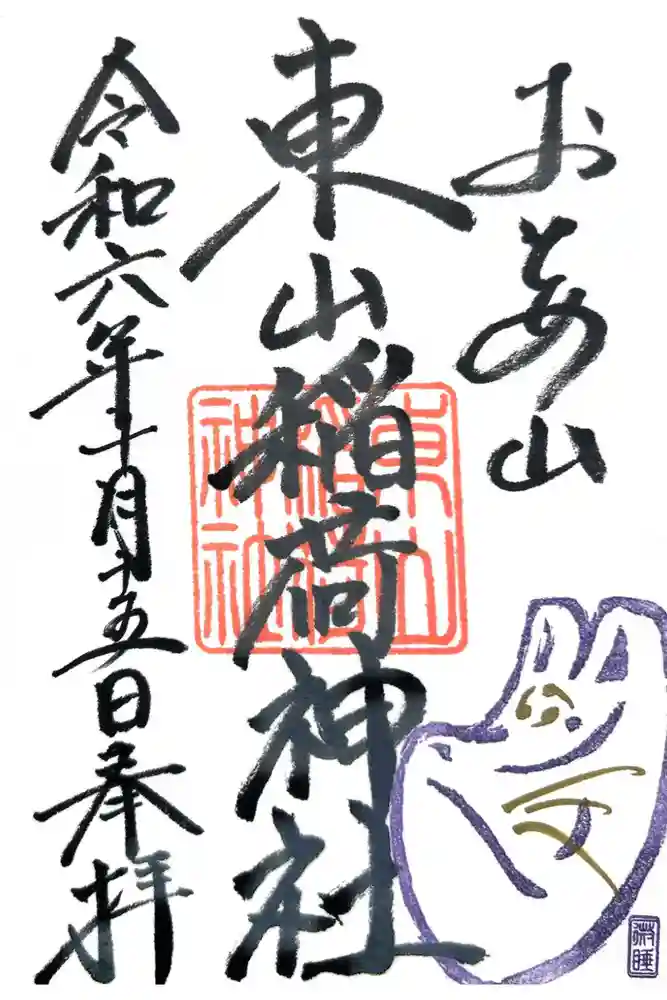 おとめ山
東山稲荷神社
令和六年十月十五日奉拝
東山
稲荷
神社
微睡